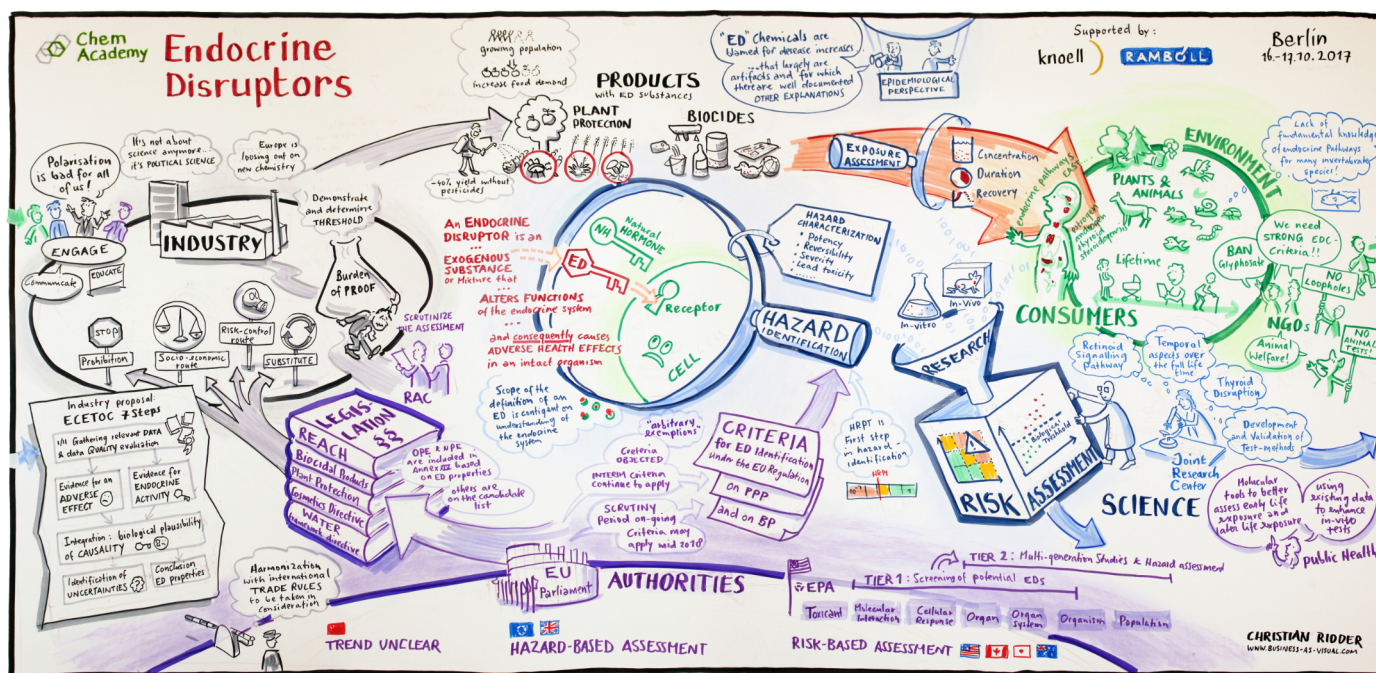 Chem
Academy
Endocrine
Disruptors
growing population
increase food demand
PRODUCTS
with ED substances
"ED" Chemicals are
blamed for disease increases...
...that largely are
artifacts and for which
there are well documented
OTHER EXPLANATIONS
EPIDEMIOLOGICAL
PERSPECTIVE
Supported by:
knoell
RAMBOLL
Berlin
16.-17.10.2017
Polarisation
is bad for all
of us!
It's not about
science anymore...
it's POLITICAL SCIENCE
Europe is
loosing out on
new chemistry
ENGAGE
Communicate
EDUCATE
INDUSTRY
Demonstrate
and determine
THRESHOLD
Burden
of PROOF
STOP
Prohibition
Socio-economic
route
Risk-control
route
SUBSTITUTE
SCRUTINIZE
THE ASSESSMENT
RAC
PLANT
PROTECTION
~40% yield without
pesticides
BIOCIDES
EXPOSURE
ASSESSMENT
Concentration
Duration
Recovery
An ENDOCRINE
DISRUPTOR is an
...
EXOGENOUS
SUBSTANCE
or Mixture that
...
ALTERS FUNCTIONS
of the endocrine system
...
and consequently causes
ADVERSE HEALTH EFFECTS
in an intact organism
Natural
HORMONE
NH
ED
Receptor
CELL
Scope of the
definition of an
ED is contigent on
understanding of
the endocrine
system
HAZARD
CHARACTERIZATION
• Potency
• Reversibility
• Severity
• Lead toxicity
HAZARD
IDENTIFICATION
In-Vitro
In-Vivo
RESEARCH
RISK
ASSESSMENT
Biological
Threshold
SCIENCE
endocrine pathways
EAST...
estrogen
androgen
thyroid
steroidogenesis
CONSUMERS
ENVIRONMENT
PLANTS &
ANIMALS
Lifetime
Lack of
fundamental knowledge
of endocrine Pathways
for many invertebrate
species!
We need
STRONG EDC-
Criteria!!
BAN
Glyphosate
NO
Loopholes
NGOs
Animal
Welfare!
NO
ANIMAL
TESTS!
Retinoid
Signalling
Pathway
Temporal
aspects over
the full life
time
Thyroid
Disruption
Development
and Validation of
Test-methods
Joint
Research
Center
Molucular
tools to better
assess early life
exposure and
later life exposure
using
existing data
to enhance
in-vivo
tests
Public Health
Industry proposal:
ECETOC 7 Steps
I/II Gathering relevant DATA
& data QUALITY evaluation
Evidence for
an
ADVERSE
EFFECT
Evidence for
ENDOCRINE
ACTIVITY
Integration: biological plausibility
of CAUSALITY
Identification of
UNCERTAINTIES
Conclusion
ED properties
Harmonization
with international
TRADE RULES
to be taken in
consideration
LEGIS-
LATION
§§
REACH
Biocidal Products
Plant Protection
Cosmetics Directive
WATER
framework directive
are included in
based
on ED properties
others are
on the candidate
list
"arbitrary
exemptions"
Creteria
OBJECTED
INTERIM Criteria
continue to apply
SCRUTINY
Period on-going
Criteria may
apply mid 2018
CRITERIA
for ED Identification
under the EU Regulation
on PPP
and on BP
HRPT is
First step
in hazard
identification
EU
Parliament
AUTHORITIES
EPA
TIER 1: Screening of potential EDs
TIER 2: Multi-generation Studies & Hazard assessment
Toxicant
Molecular
Interaction
Cellular
Response
Organ
Organ
System
Organism
Population
TREND UNCLEAR
HAZARD-BASED ASSESSMENT
RISK-BASED ASSESSMENT
CHRISTIAN RIDDER
WWW.BUSINESS-AS-VISUAL.COM